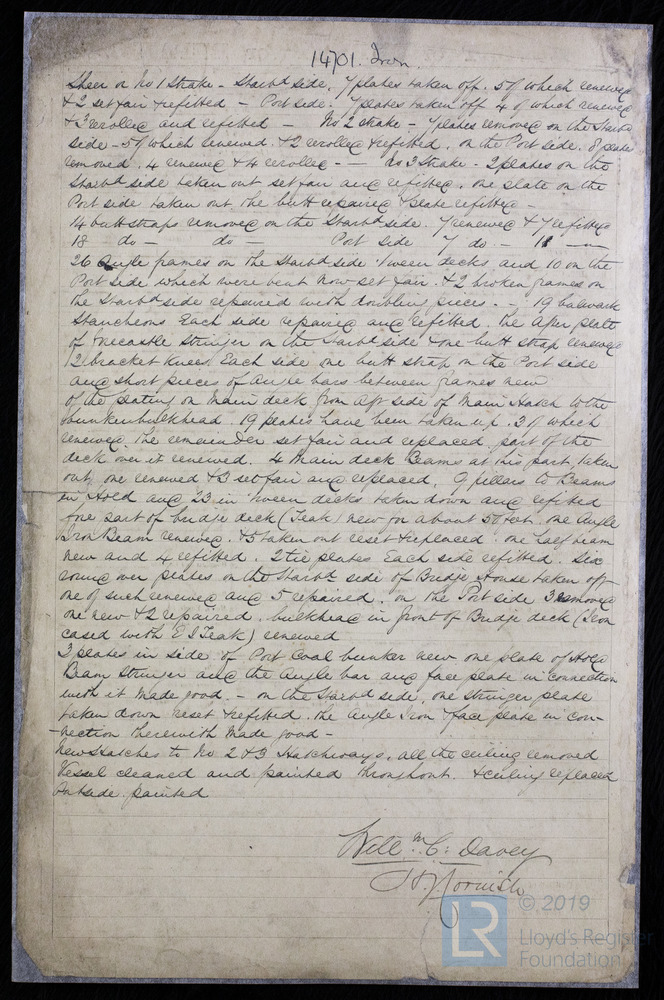 14701. Iron.
Sheer or No 1 Strake - Starbd side, 7 plates taken off. 5 of which renewed
& 2 set fair & refitted - Port side. 7 plates taken off 4 of which renewed
& 3 rerolled and refitted - No 2 strake - 7 plates removed on the Starbd
side - 5 of which renewed. & 2 rerolled & refitted. on the Port side. 8 plates
removed. 4 renewed & 4 rerolled - No 3 Strake - 2 plates on the
Starbd side taken out set fair and refitted. one plate on the
Port side taken out the butt repaired & plate refitted -
14 butt straps removed on the Starbd side. 7 renewed & 7 refitted
18 - do - do - Port side 7 do. - 11 -
26 Angle frames on the Starbd side 'tween decks and 10 on the
Port side which were bent now set fair. & 2 broken frames on
the Starbd side repaired with doubling pieces. - 19 bulwark
Stancheons Each side repaired and refitted. the after plate
of forecastle Stringer on the Starbd side & one butt strap renewed
12 bracket knees Each side one butt strap on the Port side
and short pieces of Angle bars between frames new
of the plating on Main deck from Aft side of Main Hatch to the
bunker bulkhead. 19 plates have been taken up. 3 of which
renewed. the remainder set fair and replaced part of the
deck over it renewed. 4 Main deck Beams at this part, taken
out, one renewed & 3 set fair and replaced. 9 pillars to Beams
in Hold and 23 in 'tween decks taken down and refitted
fore part of bridge deck (Teak) new for about 50 feet. one Angle
Iron Beam renewed. & 5 taken out reset & replaced. one half beam
new and 4 refitted. 2 tie plates Each side refitted. Six
round over plates on the Starbd side of Bridge House taken off
one of such renewed and 5 repaired. on the Port side 3 removed
one new & 2 repaired. bulkhead in front of Bridge deck (Iron
cased with E I Teak) renewed
3 plates in side of Port Coal bunker new one plate of Hold
Beam Stringer and the Angle bar and face plate in connection
with it Made good. - on the Starbd side, one Stringer plate
taken down reset & refitted. the Angle Iron & face plate in con-
-nection therewith Made good -
New Hatches to No 2 & 3 Hatchways, all the ceiling removed
Vessel cleaned and painted throughout. & ceiling replaced
Outside painted
Willm C: Davey
H. J. Cornish
LR
© 2019
Lloyd's Register
Foundation